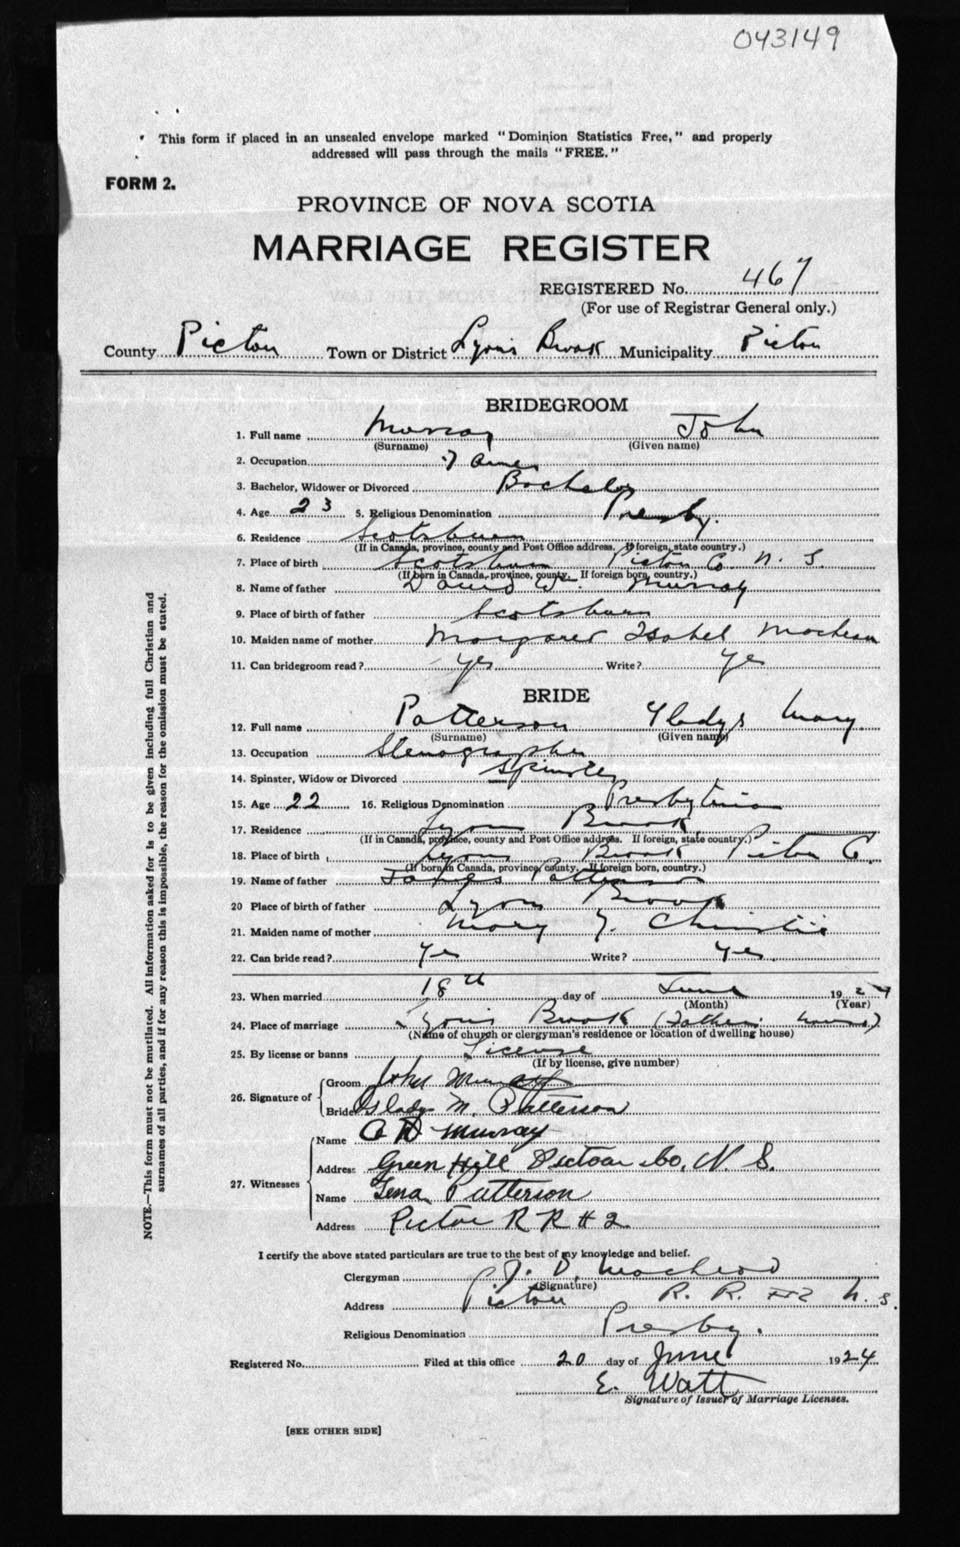 043149
This form if placed in an unsealed envelope marked "Dominion Statistics Free," and properly
addressed will pass through the mails "FREE."
FORM 2.
PROVINCE OF NOVA SCOTIA
MARRIAGE REGISTER
REGISTERED No. 467
(For use of Registrar General only.)
County Pictou Town or District Lyons Brook Municipality Pictou
BRIDEGROOM
1. Full name Murray John
(Surname) (Given name)
2. Occupation Farmer
3. Bachelor, Widower or Divorced Bachelor
4. Age 23 5. Religious Denomination Presby.
6. Residence Scotsburn
(If in Canada, province, county and Post Office address. If foreign, state country.)
7. Place of birth Scotsburn Pictou Co. N. S.
(If born in Canada, province, county. If foreign born, country.)
8. Name of father David W. Murray
9. Place of birth of father Scotsburn
10. Maiden name of mother Margaret Isabel MacLean
11. Can bridegroom read? Yes Write? Yes
BRIDE
12. Full name Patterson Gladys Mary
(Surname) (Given name)
13. Occupation Stenographer
14. Spinster, Widow or Divorced Spinster
15. Age 22 16. Religious Denomination Presbyterian
17. Residence Lyons Brook
(If in Canada, province, county and Post Office address. If foreign, state country.)
18. Place of birth Lyons Brook Pictou Co.
(If born in Canada, province, county. If foreign born, country.)
19. Name of father James Patterson
20 Place of birth of father Lyons Brook
21. Maiden name of mother Mary J. Christie
22. Can bride read? Yes Write? Yes
23. When married 18th day of June 1924
(Month) (Year)
24. Place of marriage Lyons Brook (Father's house)
(Name of church or clergyman's residence or location of dwelling house)
25. By license or banns License
(If by license, give number)
26. Signature of Groom John Murray
Bride Gladys M. Patterson
27. Witnesses
Name Murray
Address Green Hill Pictou Co, N S.
Name Lena Patterson
Address Pictou R R # 2
I certify the above stated particulars are true to the best of my knowledge and belief.
Clergyman J. D. MacLeod
(Signature)
Address Pictou R. R. #2 N. S.
Religious Denomination Presby.
Registered No. Filed at this office 20 day of June 1924
E. Watt
Signature of Issuer of Marriage Licenses.
[SEE OTHER SIDE]
NOTE.—This form must not be mutilated. All information asked for is to be given including full Christian and
surnames of all parties, and if for any reason this is impossible, the reason for the omission must be stated.